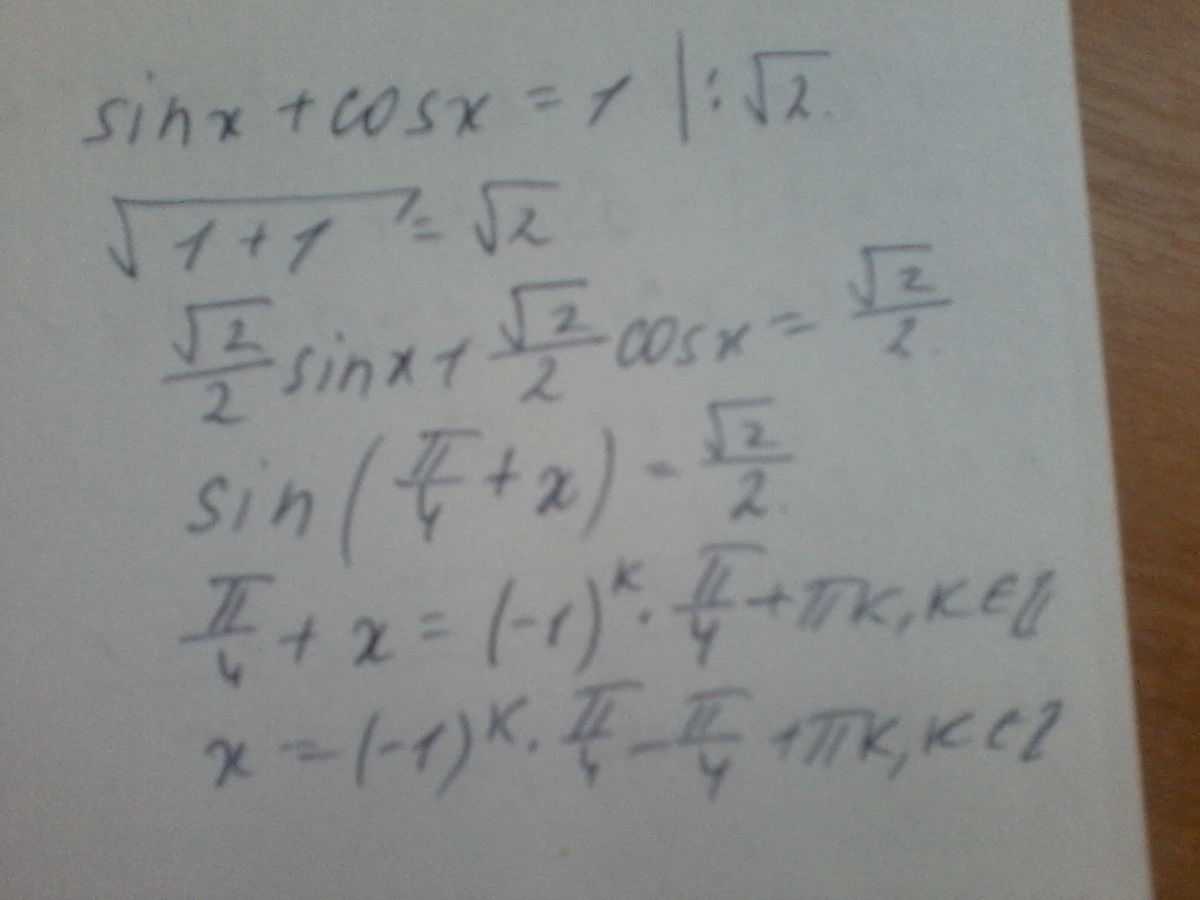 sinx + cosx = 1 | : √2
√(1+1) = √2
√2/2 sinx + √2/2 cosx = √2/2
sin(π/4 + x) = √2/2
π/4 + x = (-1)^k · π/4 + πk, k∈Z
x = (-1)^k · π/4 - π/4 + πk, k∈Z